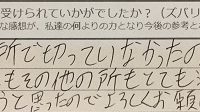 受けられていかがでしたか？（ズバリ
な感想が、私達の何よりの力となり今後の参考と
所で切っていなかったの
もその他の所もとても
うと思ったのでよろしくお願